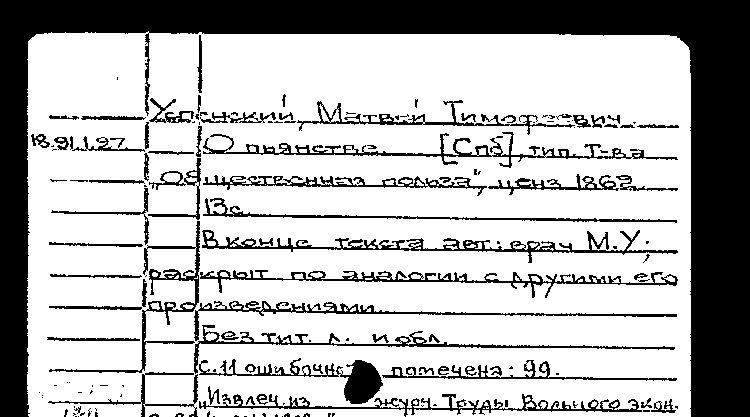 Успенский, Матвей Тимофеевич.
18.91.1.27 О пьянстве. [Спб], тип. Т-ва
„Общественная польза", ценз 1862.
13с.
В конце текста авт: врач М.У;
раскрыт по аналогии с другими его
произведениями.
Без тит. л. и обл.
с.11 ошибочно помечена: 99.
„Извлеч. из журн. Труды Вольного экон.